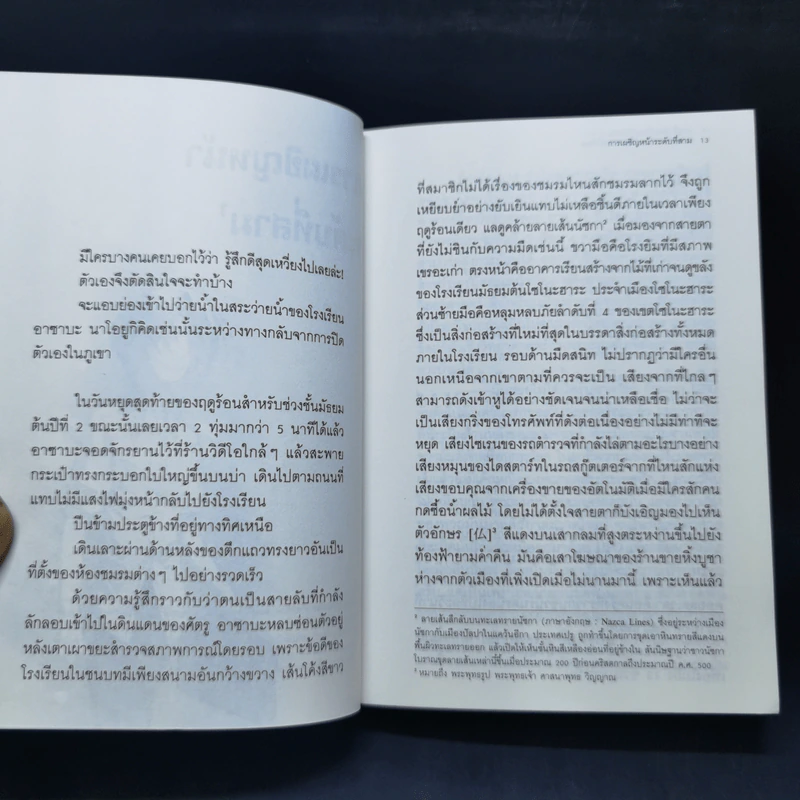 มีใครบางคนเคยบอกไว้ว่า รู้สึกดีสุดเหวี่ยงไปเลยล่ะ!
ตัวเองจึงตัดสินใจจะทำบ้าง
จะแอบย่องเข้าไปว่ายน้ำในสระว่ายน้ำของโรงเรียน
อาซาบะ นาโอยูกิคิดเช่นนั้นระหว่างทางกลับจากการปิด
ตัวเองในภูเขา
ในวันหยุดสุดท้ายของฤดูร้อนสำหรับช่วงชั้นมัธยม
ต้นปีที่ 2 ขณะนั้นเลยเวลา 2 ทุ่มมากว่า 5 นาทีได้แล้ว
อาซาบะจอดจักรยานไว้ที่ร้านวิดีโอใกล้ๆ แล้วสะพาย
กระเป๋าทรงกระบอกใบใหญ่ขึ้นบนบ่า เดินไปตามถนนที่
แทบไม่มีแสงไฟมุ่งหน้ากลับไปยังโรงเรียน
ปีนข้ามประตูข้างที่อยู่ทางทิศเหนือ
เดินเลาะผ่านด้านหลังของตึกแถวทรงยาวอันเป็น
ที่ตั้งของห้องชมรมต่างๆ ไปอย่างรวดเร็ว
ด้วยความรู้สึกราวกับว่าตนเป็นสายลับที่กำลัง
ลักลอบเข้าไปในดินแดนของศัตรู อาซาบะหลบซ่อนตัวอยู่
หลังเตาเผาขยะสำรวจสภาพการณ์โดยรอบ เพราะข้อดีของ
โรงเรียนในชนบทมีเพียงสนามอันกว้างขวาง เส้นโค้งสีขาว
การเผชิญหน้าระดับที่สาม 13
ที่สมาชิกไม่ได้เรื่องของชมรมไหนสักชมรมลากไว้ จึงถูก
เหยียบย่ำอย่างยับเยินแทบไม่เหลือชิ้นดีภายในเวลาเพียง
ฤดูร้อนเดียว แลดูคล้ายลายเส้นนัซกา² เมื่อมองจากสายตา
ที่ยังไม่ชินกับความมืดเช่นนี้ ขวามือคือโรงยิมที่มีสภาพ
เขรอะเก่า ตรงหน้าคืออาคารเรียนสร้างจากไม้ที่เก่าจนดูขลัง
ของโรงเรียนมัธยมต้นโซโนะฮาระ ประจำเมืองโซโนะฮาระ
ส่วนซ้ายมือคือหลุมหลบภัยลำดับที่ 4 ของเขตโซโนะฮาระ
ซึ่งเป็นสิ่งก่อสร้างที่ใหม่ที่สุดในบรรดาสิ่งก่อสร้างทั้งหมด
ภายในโรงเรียน รอบด้านมืดสนิท ไม่ปรากฏว่ามีใครอื่น
นอกเหนือจากเขาตามที่ควรจะเป็น เสียงจากที่ไกลๆ
สามารถดังเข้าหูได้อย่างชัดเจนจนน่าเหลือเชื่อ ไม่ว่าจะ
เป็นเสียงกริ่งของโทรศัพท์ที่ดังต่อเนื่องอย่างไม่มีท่าทีจะ
หยุด เสียงไซเรนของรถตำรวจที่กำลังไล่ตามอะไรบางอย่าง
เสียงหมุนของไดสตาร์ทในรถสกู๊ตเตอร์จากที่ไหนสักแห่ง
เสียงขอบคุณจากเครื่องขายของอัตโนมัติเมื่อมีใครสักคน
กดซื้อน้ำผลไม้ โดยไม่ได้ตั้งใจสายตาก็บังเอิญมองไปเห็น
ตัวอักษร [仏]³ สีแดงบนเสากลมที่สูงตระหง่านขึ้นไปยัง
ท้องฟ้ายามค่ำคืน มันคือเสาโฆษณาของร้านขายหิ้งบูชา
ห่างจากตัวเมืองที่เพิ่งเปิดเมื่อไม่นานมานี้ เพราะเห็นแล้ว
² ลายเส้นลึกลับบนทะเลทรายนัซกา (ภาษาอังกฤษ : Nazca Lines) ซึ่งอยู่ระหว่างเมือง
นัซกากับเมืองปัลปาในแคว้นอีกา ประเทศเปรู ถูกทำขึ้นโดยการขุดเอาหินทรายสีแดงบน
พื้นผิวทะเลทรายออก แล้วเปิดให้เห็นชั้นหินสีเหลืองอ่อนที่อยู่ข้างใน สันนิษฐานว่าชาวนัซกา
โบราณขุดลายเส้นเหล่านี้ขึ้นเมื่อประมาณ 200 ปีก่อนคริสตกาลถึงประมาณปี ค.ศ. 500
³ หมายถึง พระพุทธรูป พระพุทธเจ้า ศาสนาพุทธ วิญญาณ